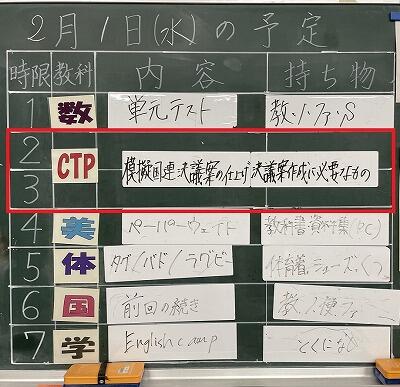 2月1日(水)の予定
時限 教科 内容 持ち物
1 数 単元テスト 教・ノ・ファ・S
2 CTP 模擬国連決議案の仕上げ 決議案作成に必要なもの
3
4 美 ペーパーウェイト 教科書資料集(PC)
5 体 タグ/バド/ラグビー 体育着・シューズ・くつ
6 国 前回の続き 教・ノ・便・ファ
7 学 English camp とくになし